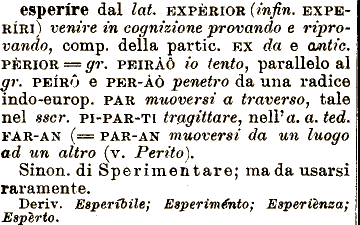 esperíre dal lat. EXPÈRIOR (infin. EXPE-
RÍRI) venire in cognizione provando e ripro-
vando, comp. della partic. EX da e antic.
PÈRIOR = gr. PEIRÁÔ io tento, parallelo al
gr. PEÍRÔ e PER-ÁÔ penetro da una radice
indo-europ. PAR muoversi a traverso, tale
nel sscr. PI-PAR-TI tragittare, nell'a. a. ted.
FAR-AN (= PAR-AN muoversi da un luogo
ad un altro (v. Perito).
Sinon. di Sperimentare; ma da usarsi
raramente.
Deriv. Esperíbile; Esperiménto; Esperiènza;
Espèrto.